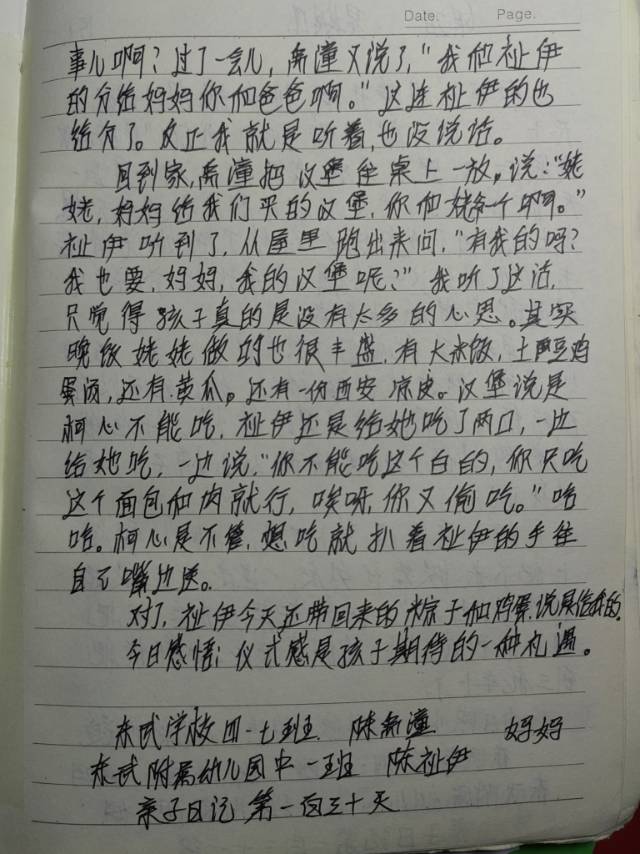 Date.    Page.
事儿啊？过了一会儿，禹潼又说了，“我和祉伊
的分给妈妈你和爸爸啊。”这连祉伊的也
给分了。反正我就是听着，也没说话。
回到家，禹潼把汉堡往桌上一放。说：“姥
姥，妈妈给我们买的汉堡，你和姥爷一个啊。”
祉伊听到了，从屋里跑出来问，“有我的吗？
我也要，妈妈，我的汉堡呢？”我听了这话，
只觉得孩子真的是没有太多的心思。其实
晚饭姥姥做的也很丰盛，有大米饭，土豆鸡
蛋卤，还有黄瓜。还有一份西安凉皮。汉堡说是
柯心不能吃，祉伊还是给她吃了两口，一边
给她吃，一边说，“你不能吃这个白的，你只吃
这个面包和肉就行，唉呀，你又偷吃。”哈
哈。柯心是不管，想吃就扒着祉伊的手往
自己嘴边送。
对了，祉伊今天还带回来的粽子和鸡蛋，说是给我的。
今日感悟：仪式感是孩子期待的一种礼遇。
东武学校四·七班 陈禹潼 妈妈
东武附属幼儿园中一班 陈祉伊
亲子日记 第一百三十天